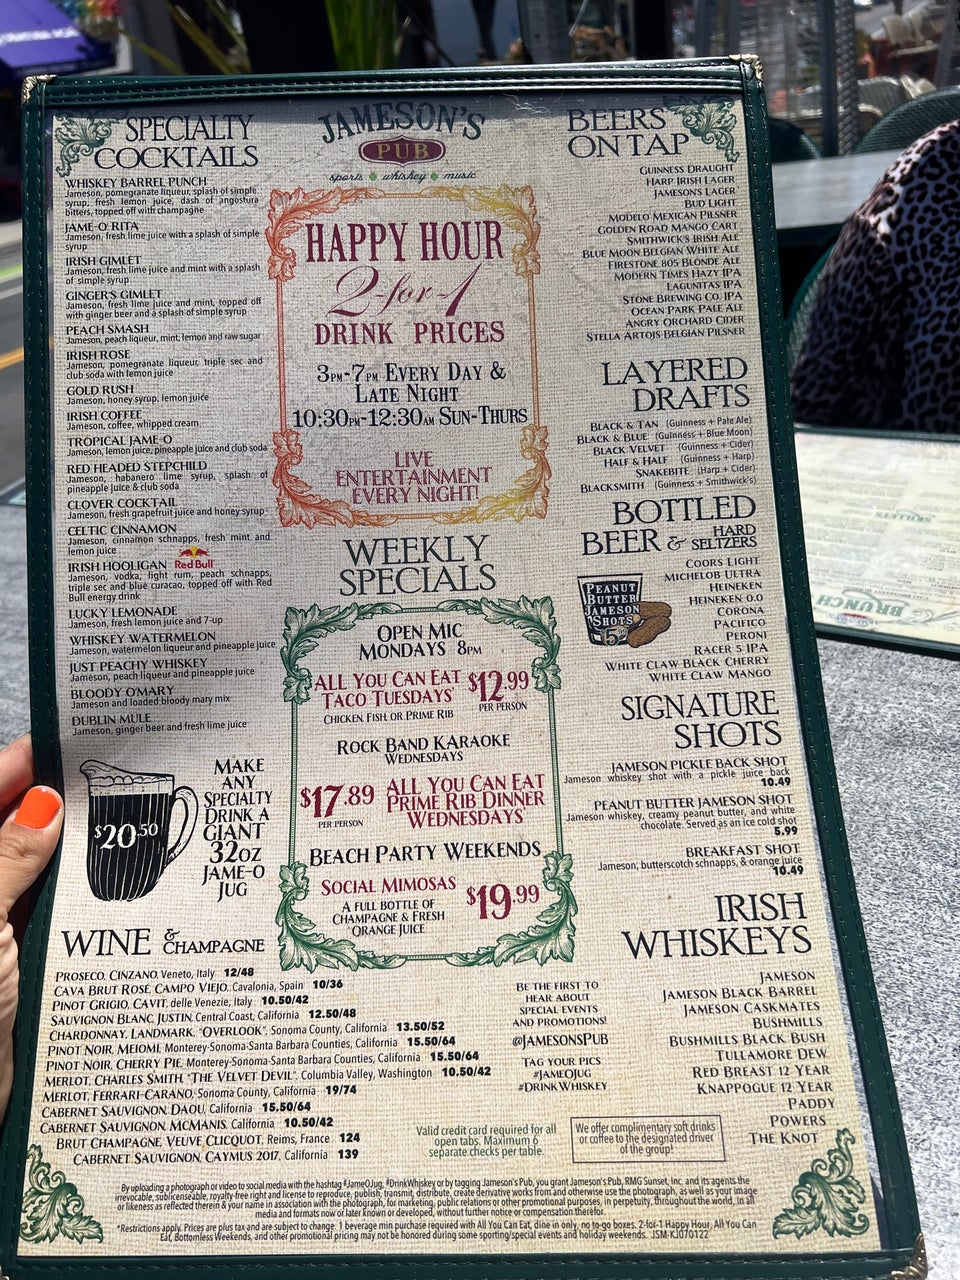 JAMESON'S
PUB
sports whiskey music
SPECIALTY
COCKTAILS
WHISKEY BARREL PUNCH
Jameson, pomegranate liqueur, splash of simple
syrup, fresh lemon juice, dash of angostura
bitters, topped off with champagne
JAME-O'RITA
Jameson, fresh lime juice with a splash of simple
syrup
IRISH GIMLET
Jameson, fresh lime juice and mint with a splash
of simple syrup
GINGER'S GIMLET
Jameson, fresh lime juice and mint, topped off
with ginger beer and a splash of simple syrup
PEACH SMASH
Jameson, peach liqueur, mint, lemon and raw sugar
IRISH ROSE
Jameson, pomegranate liqueur, triple sec and
club soda with lemon juice
GOLD RUSH
Jameson, honey syrup, lemon juice
IRISH COFFEE
Jameson, coffee, whipped cream
TROPICAL JAME-O
Jameson, lemon juice, pineapple juice and club soda
RED HEADED STEPCHILD
Jameson, habanero lime syrup, splash of
pineapple juice & club soda
CLOVER COCKTAIL
Jameson, fresh grapefruit juice and honey syrup
CELTIC CINNAMON
Jameson, cinnamon schnapps, fresh mint and
lemon juice
IRISH HOOLIGAN Red Bull
Jameson, vodka, light rum, peach schnapps,
triple sec and blue curacao, topped off with Red
Bull energy drink
LUCKY LEMONADE
Jameson, fresh lemon juice and 7-up
WHISKEY WATERMELON
Jameson, watermelon liqueur and pineapple juice
JUST PEACHY WHISKEY
Jameson, peach liqueur and pineapple juice
BLOODY O'MARY
Jameson and loaded bloody mary mix
DUBLIN MULE
Jameson, ginger beer and fresh lime juice
$20.50
MAKE
ANY
SPECIALTY
DRINK A
GIANT
32OZ
JAME-O
JUG
HAPPY HOUR
2-for-1
DRINK PRICES
3PM-7PM EVERY DAY &
LATE NIGHT
10:30PM-12:30AM SUN-THURS
LIVE
ENTERTAINMENT
EVERY NIGHT!
WEEKLY
SPECIALS
OPEN MIC
MONDAYS 8PM
ALL YOU CAN EAT
TACO TUESDAYS
$12.99
PER PERSON
CHICKEN FISH OR PRIME RIB
ROCK BAND KARAOKE
WEDNESDAYS
$17.89
PER PERSON
ALL YOU CAN EAT
PRIME RIB DINNER
WEDNESDAYS
BEACH PARTY WEEKENDS
SOCIAL MIMOSAS
A FULL BOTTLE OF
CHAMPAGNE & FRESH
ORANGE JUICE
$19.99
BEERS
ON TAP
GUINNESS DRAUGHT
HARP IRISH LAGER
JAMESON'S LAGER
BUD LIGHT
MODELO MEXICAN PILSNER
GOLDEN ROAD MANGO CART
SMITHWICK'S IRISH ALE
BLUE MOON BELGIAN WHITE ALE
FIRESTONE 805 BLONDE ALE
MODERN TIMES HAZY IPA
LAGUNITAS IPA
STONE BREWING CO. IPA
OCEAN PARK PALE ALE
ANGRY ORCHARD CIDER
STELLA ARTOIS BELGIAN PILSNER
LAYERED
DRAFTS
BLACK & TAN (Guinness + Pale Ale)
BLACK & BLUE (Guinness + Blue Moon)
BLACK VELVET (Guinness + Cider)
HALF & HALF (Guinness + Harp)
SNAKEBITE (Harp + Cider)
BLACKSMITH (Guinness + Smithwick's)
BOTTLED
BEER & HARD
SELTZERS
PEANUT
BUTTER
JAMESON
SHOTS
COORS LIGHT
MICHELOB ULTRA
HEINEKEN
HEINEKEN 0.0
CORONA
PACIFICO
PERONI
RACER 5 IPA
WHITE CLAW BLACK CHERRY
WHITE CLAW MANGO
SIGNATURE
SHOTS
JAMESON PICKLE BACK SHOT
Jameson whiskey shot with a pickle juice back
10.49
PEANUT BUTTER JAMESON SHOT
Jameson whiskey, creamy peanut butter, and white
chocolate. Served as an ice cold shot
5.99
BREAKFAST SHOT
Jameson, butterscotch schnapps, & orange juice
10.49
IRISH
WHISKEYS
JAMESON
JAMESON BLACK BARREL
JAMESON CASKMATES
BUSHMILLS
BUSHMILLS BLACK BUSH
TULLAMORE DEW
RED BREAST 12 YEAR
KNAPPOGUE 12 YEAR
PADDY
POWERS
THE KNOT
WINE & CHAMPAGNE
PROSECO, CINZANO, Veneto, Italy 12/48
CAVA BRUT ROSE, CAMPO VIEJO, Cavalonia, Spain 10/36
PINOT GRIGIO, CAVIT, delle Venezie, Italy 10.50/42
SAUVIGNON BLANC, JUSTIN, Central Coast, California 12.50/48
CHARDONNAY, LANDMARK, "OVERLOOK", Sonoma County, California 13.50/52
PINOT NOIR, MEIOMI, Monterey-Sonoma-Santa Barbara Counties, California 15.50/64
PINOT NOIR, CHERRY PIE, Monterey-Sonoma-Santa Barbara Counties, California 15.50/64
MERLOT, CHARLES SMITH, "THE VELVET DEVIL", Columbia Valley, Washington 10.50/42
MERLOT, FERRARI-CARANO, Sonoma County, California 19/74
CABERNET SAUVIGNON, DAOU, California 15.50/64
CABERNET SAUVIGNON, MCMANIS, California 10.50/42
BRUT CHAMPAGNE, VEUVE CLICQUOT, Reims, France 124
CABERNET SAUVIGNON, CAYMUS 2017, California 139
BE THE FIRST TO
HEAR ABOUT
SPECIAL EVENTS
AND PROMOTIONS!
@JAMESONSPUB
TAG YOUR PICS
#JAMEOJUG
#DRINKWHISKEY
Valid credit card required for all
open tabs. Maximum 6
separate checks per table.
We offer complimentary soft drinks
or coffee to the designated driver
of the group!
By uploading a photograph or video to social media with the hashtag #JameOJug, #DrinkWhiskey or by tagging Jameson's Pub, you grant Jameson's Pub, RMG Sunset, Inc, and its agents the
irrevocable, sublicenseable, royalty-free right and license to reproduce, publish, transmit, distribute, create derivative works from and otherwise use the photograph, as well as your image
or likeness as reflected therein & your name in association with the photograph, for marketing, public relations or other promotional purposes, in perpetuity, throughout the world, in all
media and formats now or later known or developed, without further notice or compensation therefor.
*Restrictions apply. Prices are plus tax and are subject to change. 1 beverage min purchase required with All You Can Eat, dine in only, no to-go boxes. 2-for-1 Happy Hour, All You Can
Eat, Bottomless Weekends, and other promotional pricing may not be honored during some sporting/special events and holiday weekends. JSM-KJ070122
SKILLETS
BRUNCH